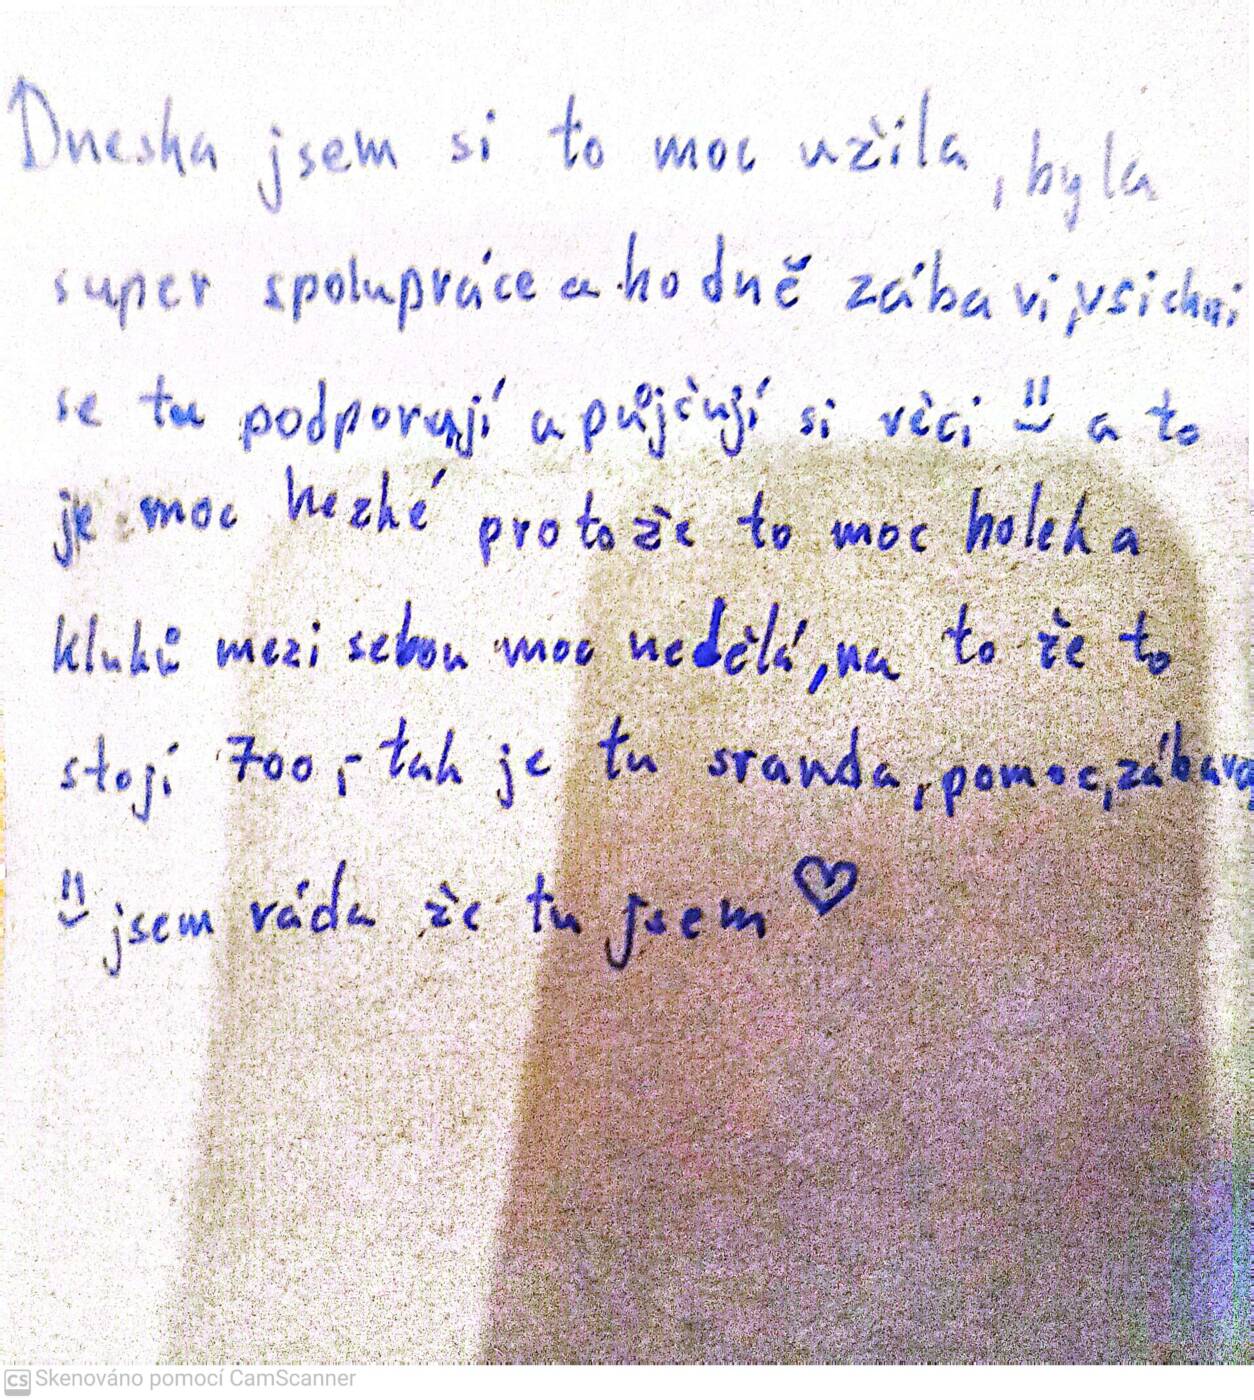 Dneska jsem si to moc užila, byla
super spolupráce a hodně zábavi, všichni
se tu podporují a půjčují si věci :) a to
je moc hezké protože to moc holek a
kluků mezi sebou moc nedělá, na to že to
stojí 700,- tak je tu sranda, pomoc, zábava,
:) jsem ráda že tu jsem ♡
CS Skenováno pomocí CamScanner